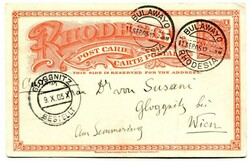 BULAWAYO
BULAWAYO
RHODESIA
RHODESIA
POST CARD
CARTE POSTALE
THIS SIDE IS RESERVED FOR THE ADDRESS
GLOGGNITZ
9.X.05
BESTELLT
Dr von Susani
Gloggnitz bei
Wien
Am Semmering